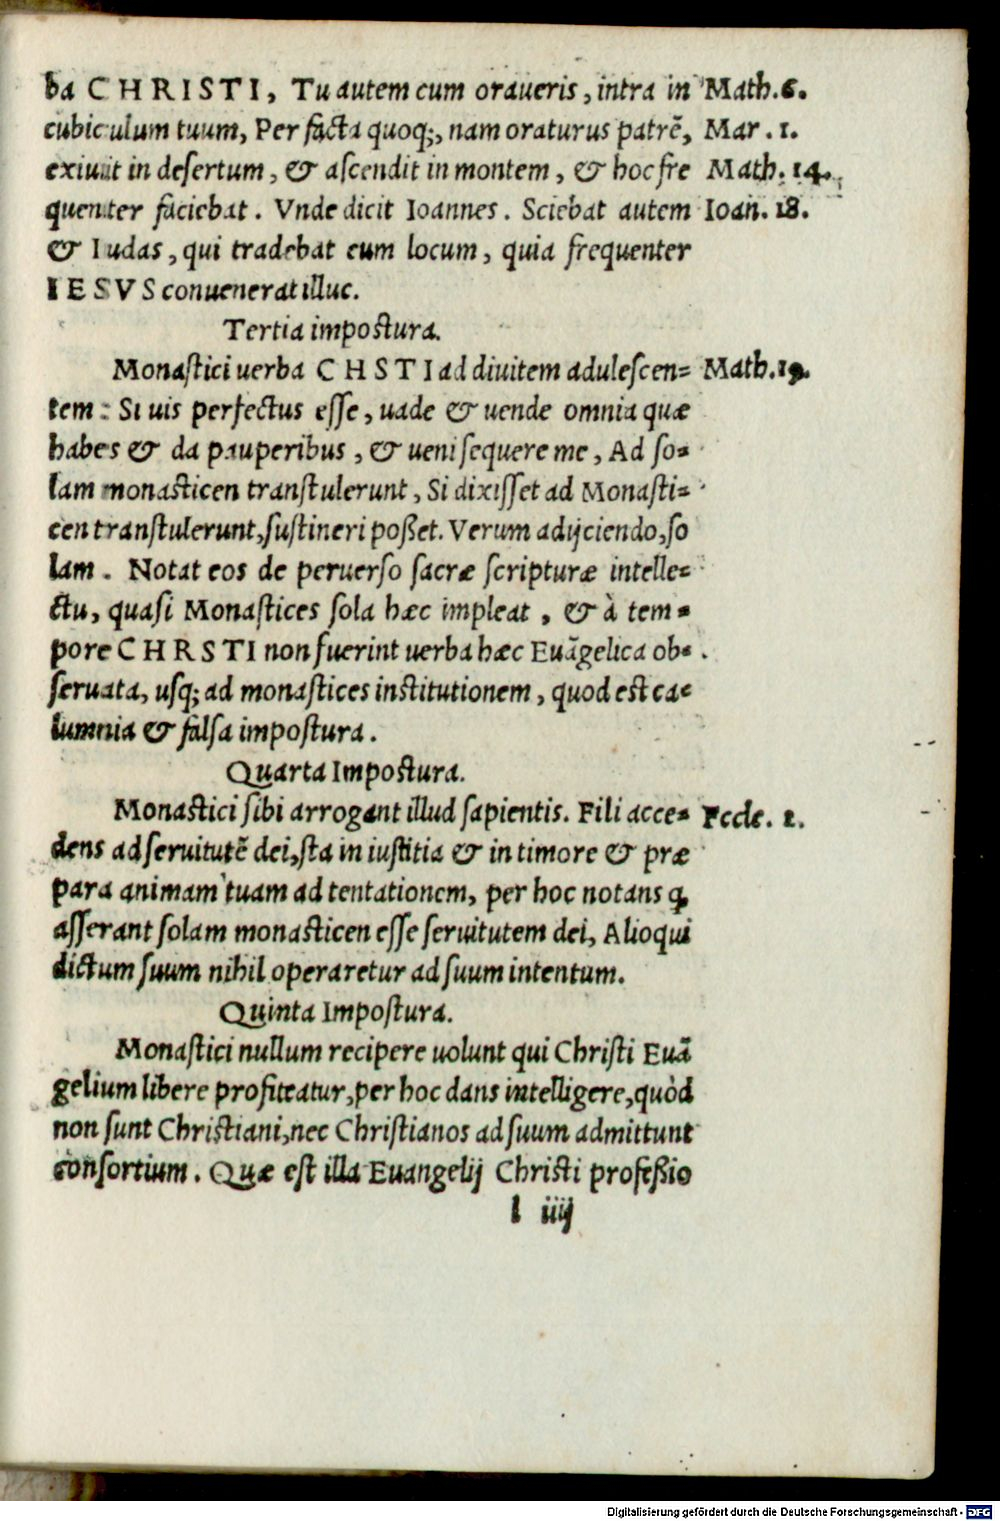 ba CHRISTI, Tu autem cum oraueris, intra in Math. 6.
cubiculum tuum, Per facta quoq;, nam oraturus patrē, Mar. 1.
exiuit in desertum, & ascendit in montem, & hoc fre Math. 14.
quenter faciebat. Vnde dicit Ioannes. Sciebat autem Ioan. 18.
& Iudas, qui tradebat eum locum, quia frequenter
IESVS conuenerat illuc.
Tertia impostura.
Monastici uerba CHSTI ad diuitem adulescen= Math. 19.
tem: Si uis perfectus esse, uade & uende omnia quæ
habes & da pauperibus, & ueni sequere me, Ad so=
lam monasticen transtulerunt, Si dixisset ad Monasti=
cen transtulerunt, sustineri poßet. Verum adijciendo, so
lam. Notat eos de peruerso sacræ scripturæ intelle=
ctu, quasi Monastices sola hæc impleat, & à tem=
pore CHRSTI non fuerint uerba hæc Euãgelica ob=
seruata, usq; ad monastices institutionem, quod est ca=
lumnia & falsa impostura.
Quarta Impostura.
Monastici sibi arrogant illud sapientis. Fili acce= Eccle. 2.
dens ad seruitutẽ dei, sta in iustitia & in timore & præ
para animam tuam ad tentationem, per hoc notans ꝙ
asserant solam monasticen esse seruitutem dei, Alioqui
dictum suum nihil operaretur ad suum intentum.
Quinta Impostura.
Monastici nullum recipere uolunt qui Christi Euã
gelium libere profiteatur, per hoc dans intelligere, quòd
non sunt Christiani, nec Christianos ad suum admittunt
consortium. Quæ est illa Euangelij Christi profeßio
l iiij
Digitalisierung gefördert durch die Deutsche Forschungsgemeinschaft - DFG